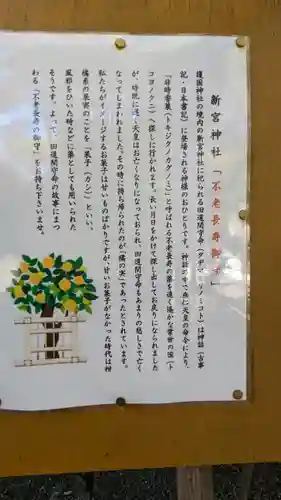 新宮神社「不老長寿御守」
護国神社の境内の新宮神社に祀られる田道間守命(タヂマモリノミコト)は神話(古事
記・日本書記)に登場される神様のおひとりです。神話の中で垂仁天皇の命令により、
「非時香菓(トキジクノカグノミ)」と呼ばれる不老長寿の薬を遠く遙かな常世の国(ト
コヨノクニ)へ探しに行かれます。長い月日をかけて探し出してお戻りになられました
が、時既に遅く天皇はお亡くなりになっておられ、田道間守命もあまりの悲しさで亡く
なってしまわれました。その時に持ち帰られたのが「橘の実」であったとされています。
私たちがイメージするお菓子は甘いものばかりですが、甘いお菓子がなかった時代は柑
橘系の果実のことを「菓子(カシ)」といい、
風邪をひいた時などに薬としても用いられた
そうです。よって、田道間守命の故事にまつ
わる「不老長寿の御守」をお持ち下さいませ。